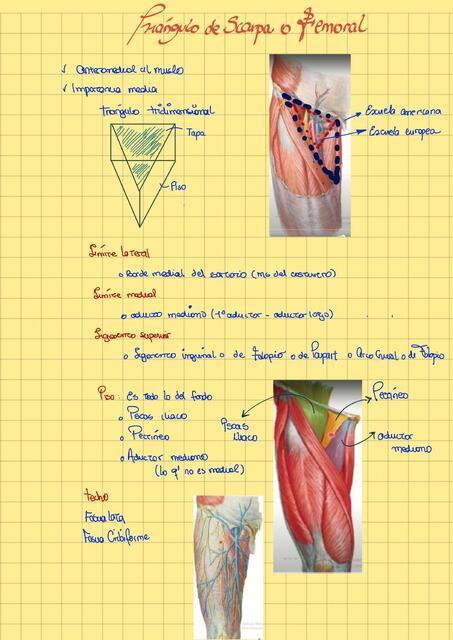 Triángulo de Scarpa o Femoral
✓ Anteromedial al muslo
✓ Importancia media
triángulo tridimensional
Tapa
Piso
Escuela americana
Escuela europea
Límite lateral
o Borde medial del sartorio (ms del costurero)
Límite medial
o aductor mediano (-1º aductor - aductor largo)
Ligamento superior
o Ligamento inguinal o de Falopio o de Poupart o Arco Crural o de Falopio
Piso: Es todo lo del fondo
o Psoas iliaco
o Pectíneo
o Aductor mediano
(lo q' no es medial)
Psoas iliaco
Pectíneo
aductor mediano
techo
Fascia lata
Fascia Cribiforme